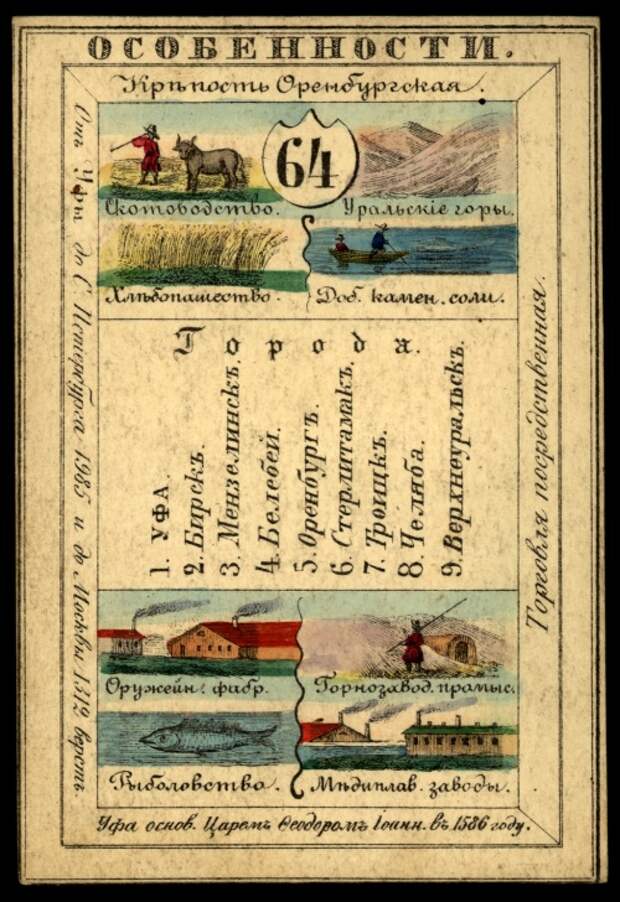 ОСОБЕННОСТИ.
Крѣпость Оренбургская.
64
Скотоводство.
Уральскіе горы.
Хлѣбопашество.
Доб. камен. соли.
Города.
1. УФА.
2. Бирскъ.
3. Мензелинскъ.
4. Белебей.
5. Оренбургъ.
6. Стерлитамакъ.
7. Троицкъ.
8. Челяба.
9. Верхнеуральскъ.
Оружейн. фабр.
Горнозавод. промыс.
Рыболовство.
Мѣдиплав. заводы.
Отъ Уфы до С. Петербурга 1985 и до Москвы 1312 верстъ.
Торговля посредственная.
Уфа основ. Царемъ Ѳеодоромъ Іоанн. въ 1586 году.